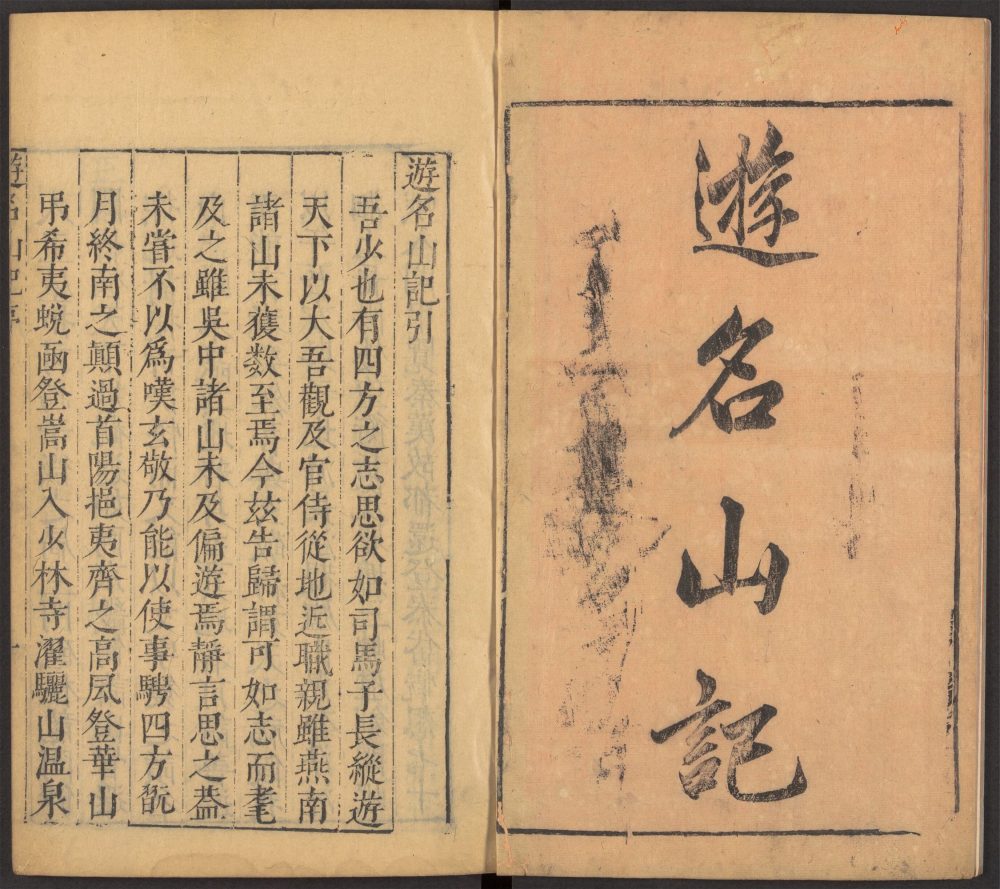 遊名山記
遊名山記引
吾少也有四方之志思欲如司馬子長縱遊
天下以大吾觀及官侍從地近職親雖燕南
諸山未獲数至焉今玆告歸謂可如志而耄
及之雖吳中諸山未及偏遊焉靜言思之葢
未甞不以爲嘆玄敬乃能以使事騁四方旣
月終南之顛過首陽挹夷齊之高風登華山
弔希夷蛻凾登嵩山入少林寺濯驪山温泉